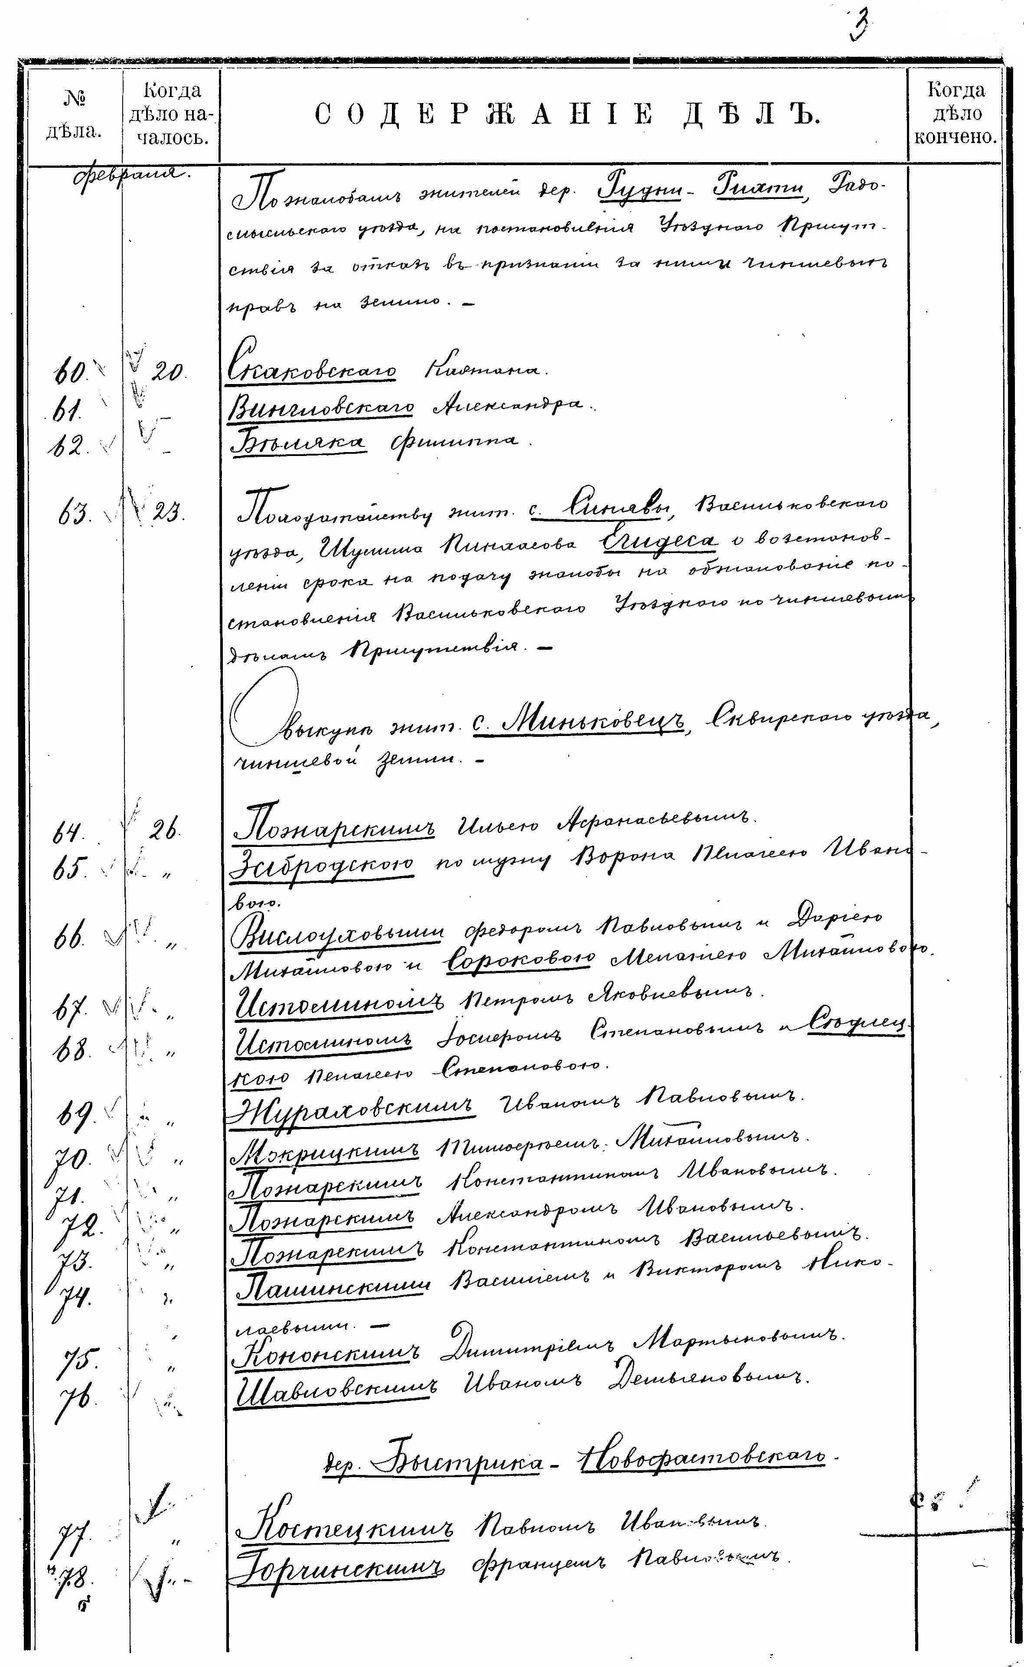 3
№ дѣла.
Когда дѣло началось.
СОДЕРЖАНІЕ ДѢЛЪ.
Когда дѣло кончено.
февраля.
По жалобамъ жителей дер. Рудни-Гияти, Радо-
мысльскаго уѣзда, на постановленія Уѣзднаго Присут-
ствія за отказъ въ признаніи за ними чиншевыхъ
правъ на землю. –
60. 20. Скаковскаго Каэтана.
61. – Вингловскаго Александра.
62. – Бѣляка Филиппа.
63. 23. По ходатайству жит. с. Синявы, Васильковскаго
уѣзда, Шулима Пинхасова Егидеса о возстанов-
леніи срока на подачу жалобы на обжалованіе по-
становленія Васильковскаго Уѣзднаго по чиншевымъ
дѣламъ Присутствія. –
О выкупѣ жит. с. Миньковецъ, Сквирскаго уѣзда,
чиншевой земли. –
64. 26. Пожарскимъ Ильею Афанасьевымъ.
65. „ Забродскою по мужу Ворона Пелагеею Ивано-
вою.
66. „ Вислоуховыми Федоромъ Павловымъ и Даріею
Михайловою и Сороковою Меланіею Михайловою.
67. „ Истоминомъ Петромъ Яковлевымъ.
68. „ Истоминомъ Іосифомъ Степановымъ и Сѣдлец-
кою Пелагеею Степановою.
69. „ Жураховскимъ Иваномъ Павловымъ.
70. „ Мокрицкимъ Тимофѣемъ Михайловымъ.
71. „ Пожарскимъ Константиномъ Ивановымъ.
72. „ Пожарскимъ Александромъ Ивановымъ.
73. „ Пожарскимъ Константиномъ Васильевымъ.
74. „ Пашинскими Василіемъ и Викторомъ Нико-
лаевыми. –
75. „ Кононскимъ Димитріемъ Мартыновымъ.
76. „ Шавловскимъ Иваномъ Демьяновымъ.
дер. Быстрика - Новофастовскаго.
77. „ Костецкимъ Павломъ Ивановымъ.
78. „ Горчинскимъ Францемъ Павловымъ.